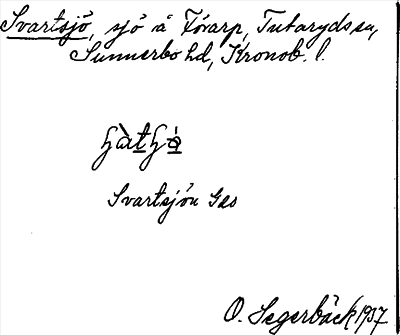 Svartsjö, sjö å Tövarp, Tutaryds sn,
Sunnerbo hd, Kronob. l.
Svartsjön Gds
O. Segerbäck 1937